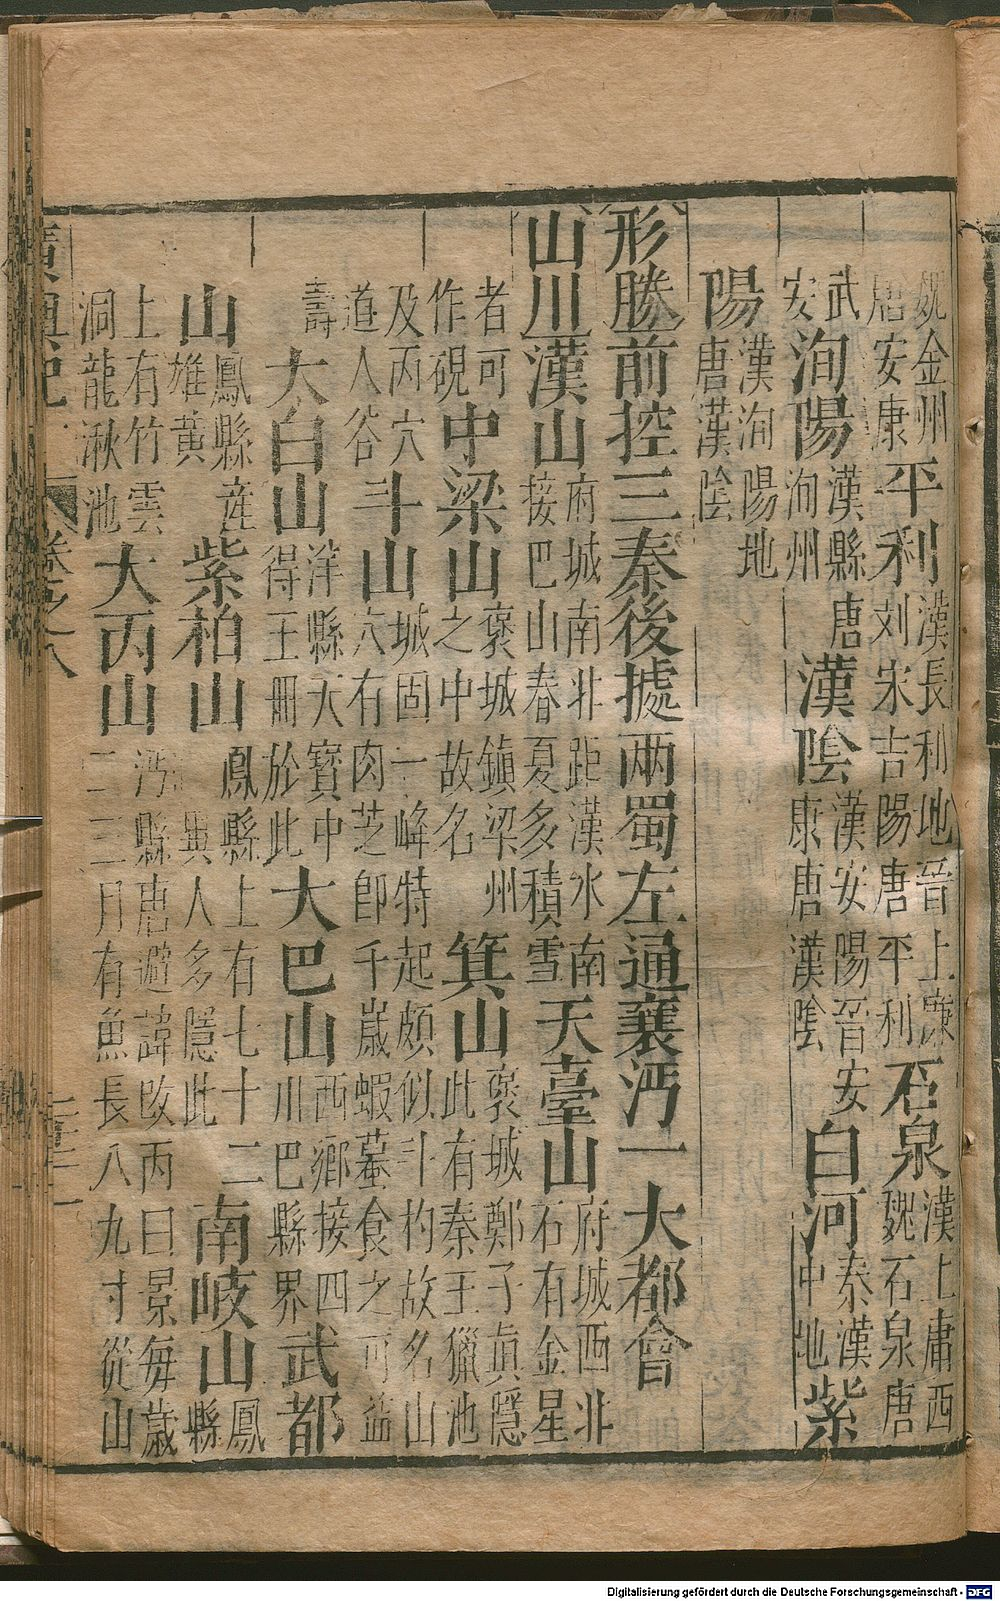 魏金州唐安康平利漢長利地晉上廉刘宋吉陽唐平利石泉漢上庸西魏石泉唐
武安洵陽漢縣唐洵州漢陰漢安陽晉安康唐漢陰白河秦漢中地紫
陽漢洵陽地唐漢陰
形勝前控三秦後㨿兩蜀左通襄沔一大都會
山川漢山府城南北距漢水南接巴山春夏多積雪天臺山府城西北石有金星
者可作硯中梁山褒城鎮梁州之中故名箕山褒城鄭子眞隱此有秦王獵池
及丙穴道人谷斗山城固一峰特起頗似斗杓故名山穴有肉芝即千歲蝦蟇食之可益
壽太白山洋縣天寶中得王冊於此大巴山西鄉接四川巴縣界武都
山鳳縣產雄黃紫柏山鳳縣上有七十二異人多隱此南岐山鳳縣
上有竹雲洞龍湫池大丙山沔縣唐避諱改丙曰景每歲二三月有魚長八九寸從山
廣輿記
卷之八
Digitalisierung gefördert durch die Deutsche Forschungsgemeinschaft - DFG